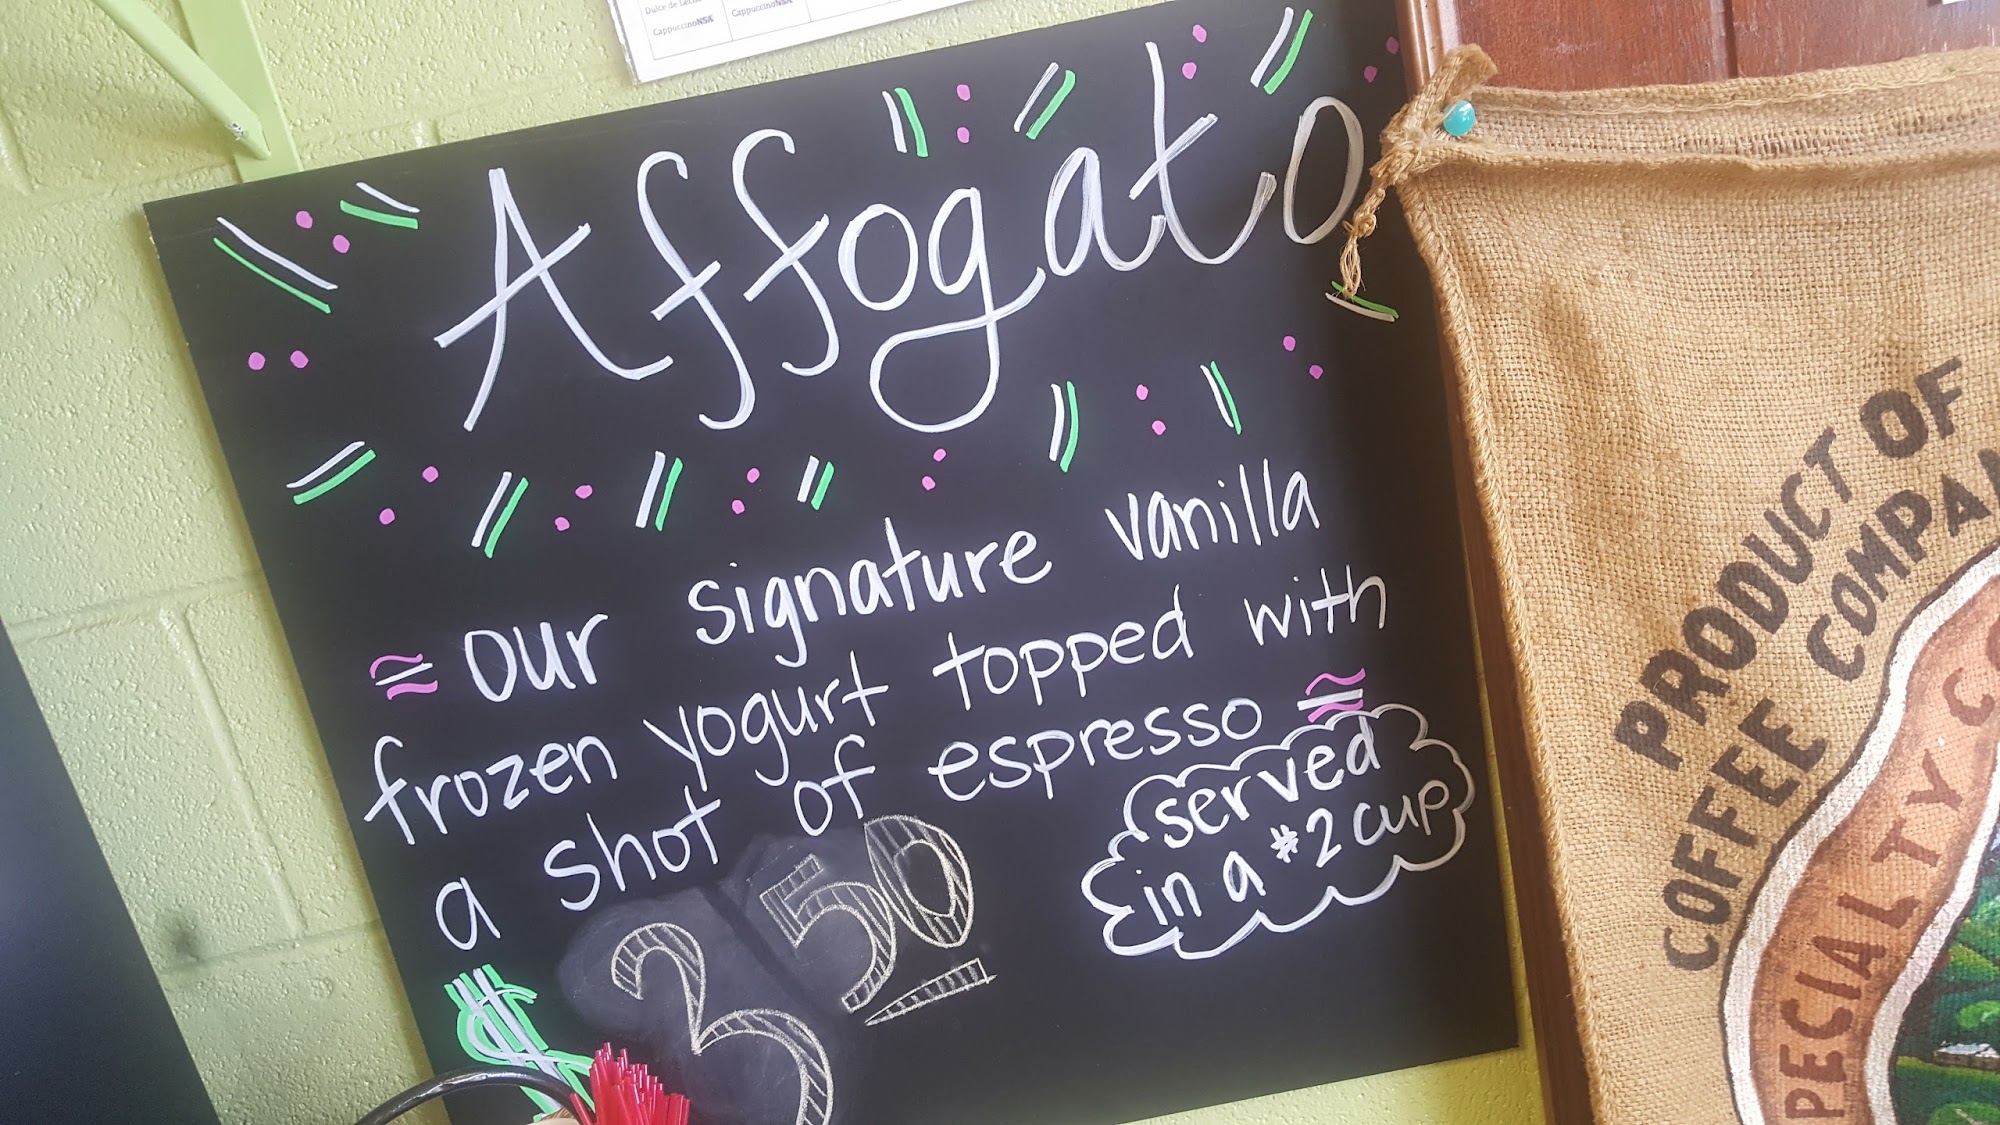 Dulce de Lech
CappuccinoNSA CappuccinoNSA
Affogato
≈ our signature vanilla
frozen yogurt topped with
a shot of espresso ≈
served
in a #2 cup
$ 3 50
PRODUCT OF
COFFEE COMPAN
SPECIALTY CO